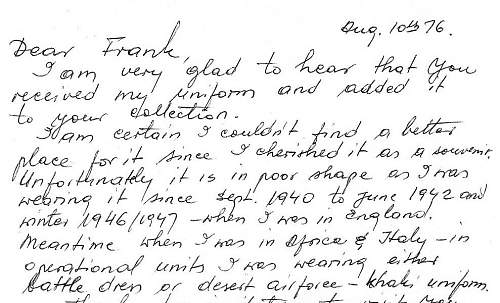 Aug. 10th 76.
Dear Frank,
I am very glad to hear that you
received my uniform and added it
to your collection.
I am certain I couldn't find a better
place for it since I cherished it as a souvenir.
Unfortunatelly it is in poor shape as I was
wearing it since Sept. 1940 to June 1942 and
winter 1946/1947 - when I was in England.
Meantime when I was in Africa & Italy - in
operational units I was wearing either
battle dress or desert airforce - khaki uniform.